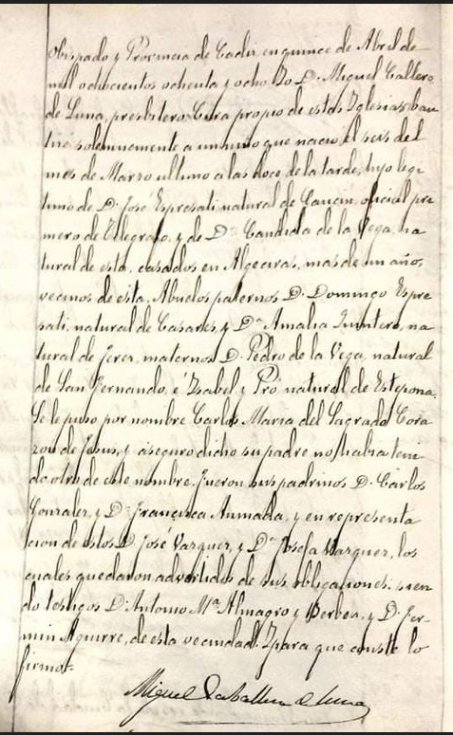 Obispado y Provincia de Cadiz en quince de Abril de
mil ochocientos ochenta y ocho Yo D. Miguel Caballero
de Luna, presbitero Cura propio de estas Iglesias, bau
tizé solemnemente a un niño que nacio el seis del
mes de Marzo ultimo a las doce de la tarde, hijo legi
timo de D. José Espresati natural de Gaucin, oficial pri
mero de Telegrafo, y de Dª Candida de la Vega, na
tural de esta, casados en Algeciras, mas de un año,
vecinos de esta. Abuelos paternos D. Domingo Espre
sati, natural de Casares, y Dª Amalia Quintero, na
tural de Jerez, maternos D. Pedro de la Vega, natural
de San Fernando, é Isabel y Pró natural de Estepona.
Se le puso por nombre Carlos Maria del Sagrado Cora
zon de Jesus, y aseguro dicho su padre no habia teni
do otro de este nombre. Fueron sus padrinos D. Carlos
Gonzalez, y D. Francisca Ahumada, y en representa
cion de estos D. José Vazquez, y Dª Josefa Vazquez, los
cuales quedaron advertidos de sus obligaciones: sien
do testigos D. Antonio Mª Almagro y Berben, y D. Fer
min Aguirre, de esta vecindad. Y para que conste lo
firmo.
Miguel Caballero de Luna